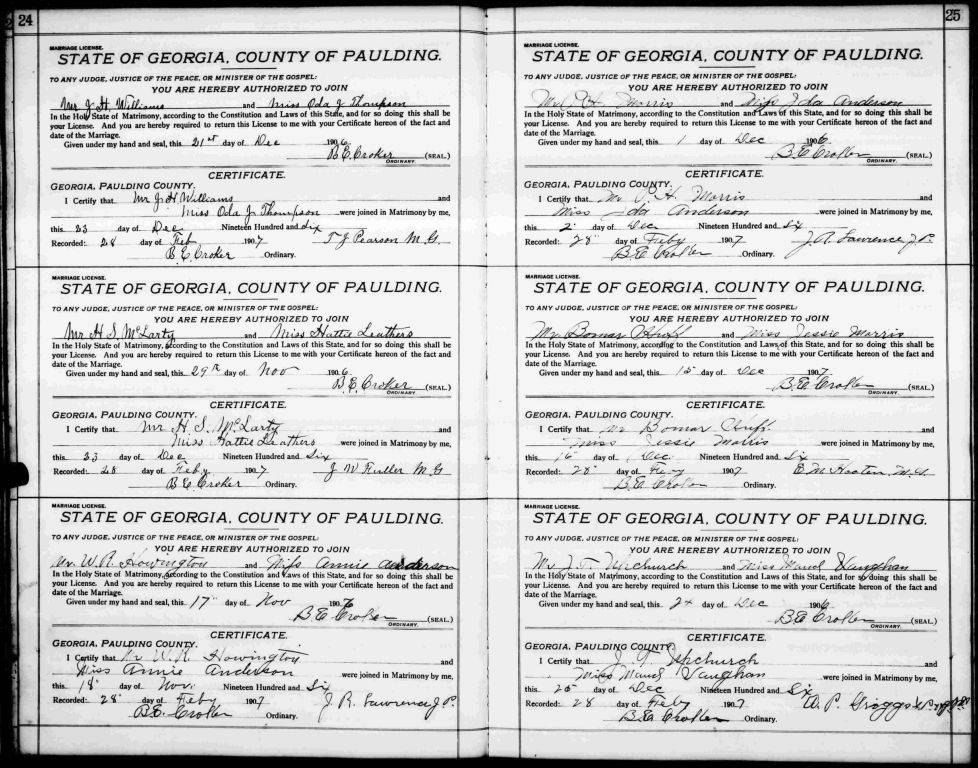 24
MARRIAGE LICENSE.
STATE OF GEORGIA, COUNTY OF PAULDING.
TO ANY JUDGE, JUSTICE OF THE PEACE, OR MINISTER OF THE GOSPEL:
YOU ARE HEREBY AUTHORIZED TO JOIN
Mr J. H. Williams and Miss Oda J Thompson
In the Holy State of Matrimony, according to the Constitution and Laws of this State, and for so doing this shall be
your License. And you are hereby required to return this License to me with your Certificate hereon of the fact and
date of the Marriage.
Given under my hand and seal, this 21st day of Dec 1906
B. E. Croker (SEAL.)
ORDINARY.
CERTIFICATE.
GEORGIA, PAULDING COUNTY.
I Certify that Mr J. H Williams and
Miss Oda J Thompson were joined in Matrimony by me,
this 23 day of Dec Nineteen Hundred and six
Recorded: 28 day of Feb 1907 T J Pearson M. G.
B. E. Croker Ordinary.
MARRIAGE LICENSE.
STATE OF GEORGIA, COUNTY OF PAULDING.
TO ANY JUDGE, JUSTICE OF THE PEACE, OR MINISTER OF THE GOSPEL:
YOU ARE HEREBY AUTHORIZED TO JOIN
Mr H S. McLarty and Miss Hattie Leathers
In the Holy State of Matrimony, according to the Constitution and Laws of this State, and for so doing this shall be
your License. And you are hereby required to return this License to me with your Certificate hereon of the fact and
date of the Marriage.
Given under my hand and seal, this 29th day of Nov 1906
B. E. Croker (SEAL)
ORDINARY.
CERTIFICATE.
GEORGIA, PAULDING COUNTY.
I Certify that Mr H. S. McLarty and
Miss Hattie Leathers were joined in Matrimony by me,
this 23 day of Dec Nineteen Hundred and Six
Recorded: 28 day of Feby 1907 J W M G
B E Croker Ordinary.
MARRIAGE LICENSE.
STATE OF GEORGIA, COUNTY OF PAULDING.
TO ANY JUDGE, JUSTICE OF THE PEACE, OR MINISTER OF THE GOSPEL:
YOU ARE HEREBY AUTHORIZED TO JOIN
Mr. W. R. Howington and Miss Annie Anderson
In the Holy State of Matrimony, according to the Constitution and Laws of this State, and for so doing this shall be
your License. And you are hereby required to return this License to me with your Certificate hereon of the fact and
date of the Marriage.
Given under my hand and seal, this 17" day of Nov 1906
B. E Croker (SEAL)
ORDINARY.
CERTIFICATE.
GEORGIA, PAULDING COUNTY.
I Certify that Mr W. R Howington and
Miss Annie Anderson were joined in Matrimony by me,
this 18" day of Nov. Nineteen Hundred and Six
Recorded: 28" day of Feby 1907 J. R. Lawrence J P.
B. E. Croker Ordinary.
25
MARRIAGE LICENSE.
STATE OF GEORGIA, COUNTY OF PAULDING.
TO ANY JUDGE, JUSTICE OF THE PEACE, OR MINISTER OF THE GOSPEL:
YOU ARE HEREBY AUTHORIZED TO JOIN
Mr. H. Morris and Miss Ida Anderson
In the Holy State of Matrimony, according to the Constitution and Laws of this State, and for so doing this shall be
your License. And you are hereby required to return this License to me with your Certificate hereon of the fact and
date of the Marriage.
Given under my hand and seal, this 1 day of Dec 1906
B. E Croker (SEAL.)
ORDINARY.
CERTIFICATE.
GEORGIA, PAULDING COUNTY.
I Certify that Mr. H. Morris and
Miss Ida Anderson were joined in Matrimony by me,
this 2 day of Dec Nineteen Hundred and six
Recorded: 28" day of Feby 1907 J. A. Lawrence J P.
B. E Croker Ordinary.
MARRIAGE LICENSE.
STATE OF GEORGIA, COUNTY OF PAULDING.
TO ANY JUDGE, JUSTICE OF THE PEACE, OR MINISTER OF THE GOSPEL:
YOU ARE HEREBY AUTHORIZED TO JOIN
Mr. Bomar Huff and Miss Jessie Morris
In the Holy State of Matrimony, according to the Constitution and Laws of this State, and for so doing this shall be
your License. And you are hereby required to return this License to me with your Certificate hereon of the fact and
date of the Marriage.
Given under my hand and seal, this 15 day of Dec 1907
B. E Croker (SEAL)
ORDINARY.
CERTIFICATE.
GEORGIA, PAULDING COUNTY.
I Certify that Mr Bomar Huff and
Miss Jessie Morris were joined in Matrimony by me,
this 16 day of Dec Nineteen Hundred and Six
Recorded: 28" day of Feby 1907 E. M. Hooten M. G.
B. E. Croker Ordinary.
MARRIAGE LICENSE.
STATE OF GEORGIA, COUNTY OF PAULDING.
TO ANY JUDGE, JUSTICE OF THE PEACE, OR MINISTER OF THE GOSPEL:
YOU ARE HEREBY AUTHORIZED TO JOIN
Mr. J. T. Upchurch and Miss Maud Vaughan
In the Holy State of Matrimony, according to the Constitution and Laws of this State, and for so doing this shall be
your License. And you are hereby required to return this License to me with your Certificate hereon of the fact and
date of the Marriage.
Given under my hand and seal, this 24 day of Dec 1906
B. E Croker (SEAL)
ORDINARY.
CERTIFICATE.
GEORGIA, PAULDING COUNTY.
I Certify that J. T. Upchurch and
Miss Maud Vaughan were joined in Matrimony by me,
this 25 day of Dec Nineteen Hundred and Six
Recorded: 28 day of Feby 1907 W. P. Griggs
B. E. Croker Ordinary.